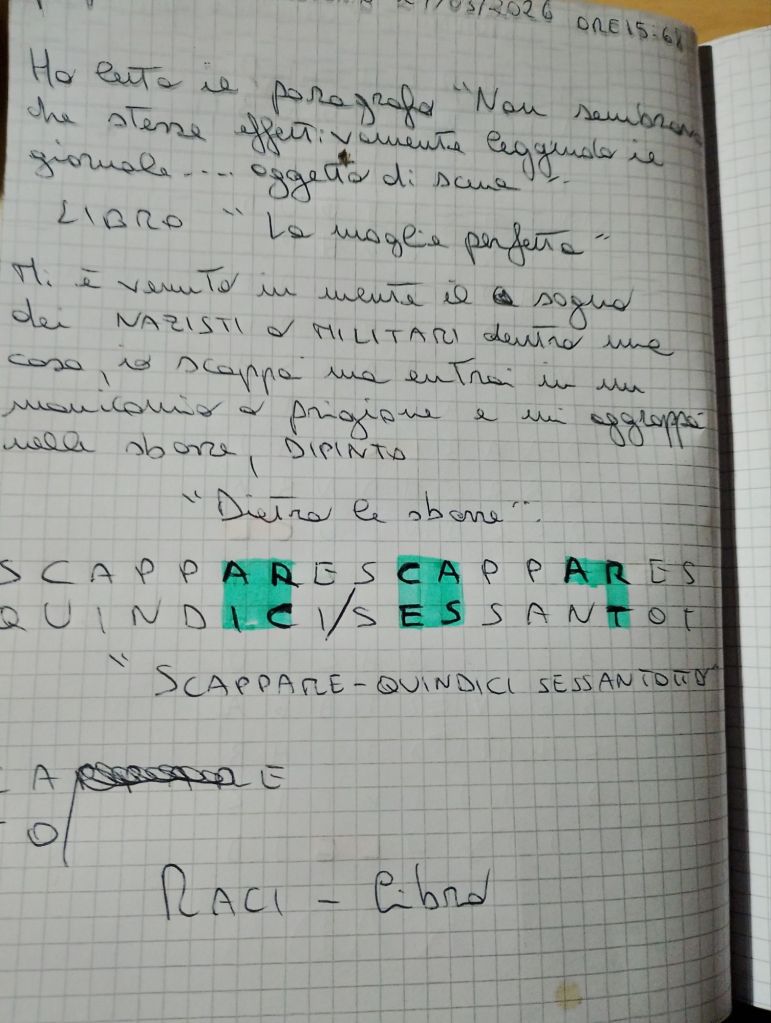 21/03/2026 ORE 15:68
Ho letto il paragrafo "Non sembrava
che stesse effettivamente leggendo il
giornale.... oggetto di scena".
LIBRO "La moglie perfetta"
Mi è venuto in mente il sogno
dei NAZISTI o MILITARI dentro una
casa, io scappai ma entrai in un
manicomio o prigione e mi aggrappai
nelle sbarre, DIPINTO
"Dietro le sbarre".
S C A P P A R E S C A P P A R E S
Q U I N D I C I / S E S S A N T O T
"SCAPPARE-QUINDICI SESSANTOTTO"
A E
O /
RACI - Libro